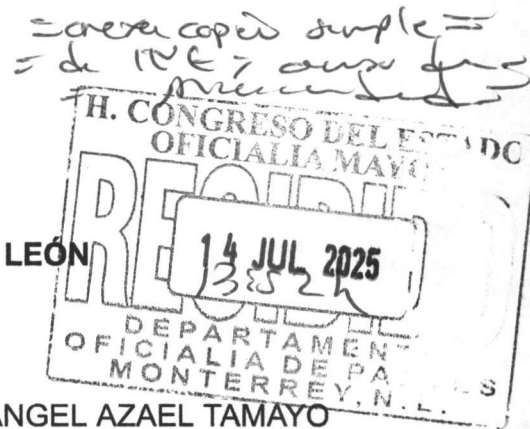 = anexa copia simple =
= de INE y
H. CONGRESO DEL ESTADO
OFICIALIA MAYO
RECIBID
LEÓN
14 JUL 2025
DEPARTAMEN
OFICIALIA DE PA S
MONTERREY, N.L.
ANGEL AZAEL TAMAYO